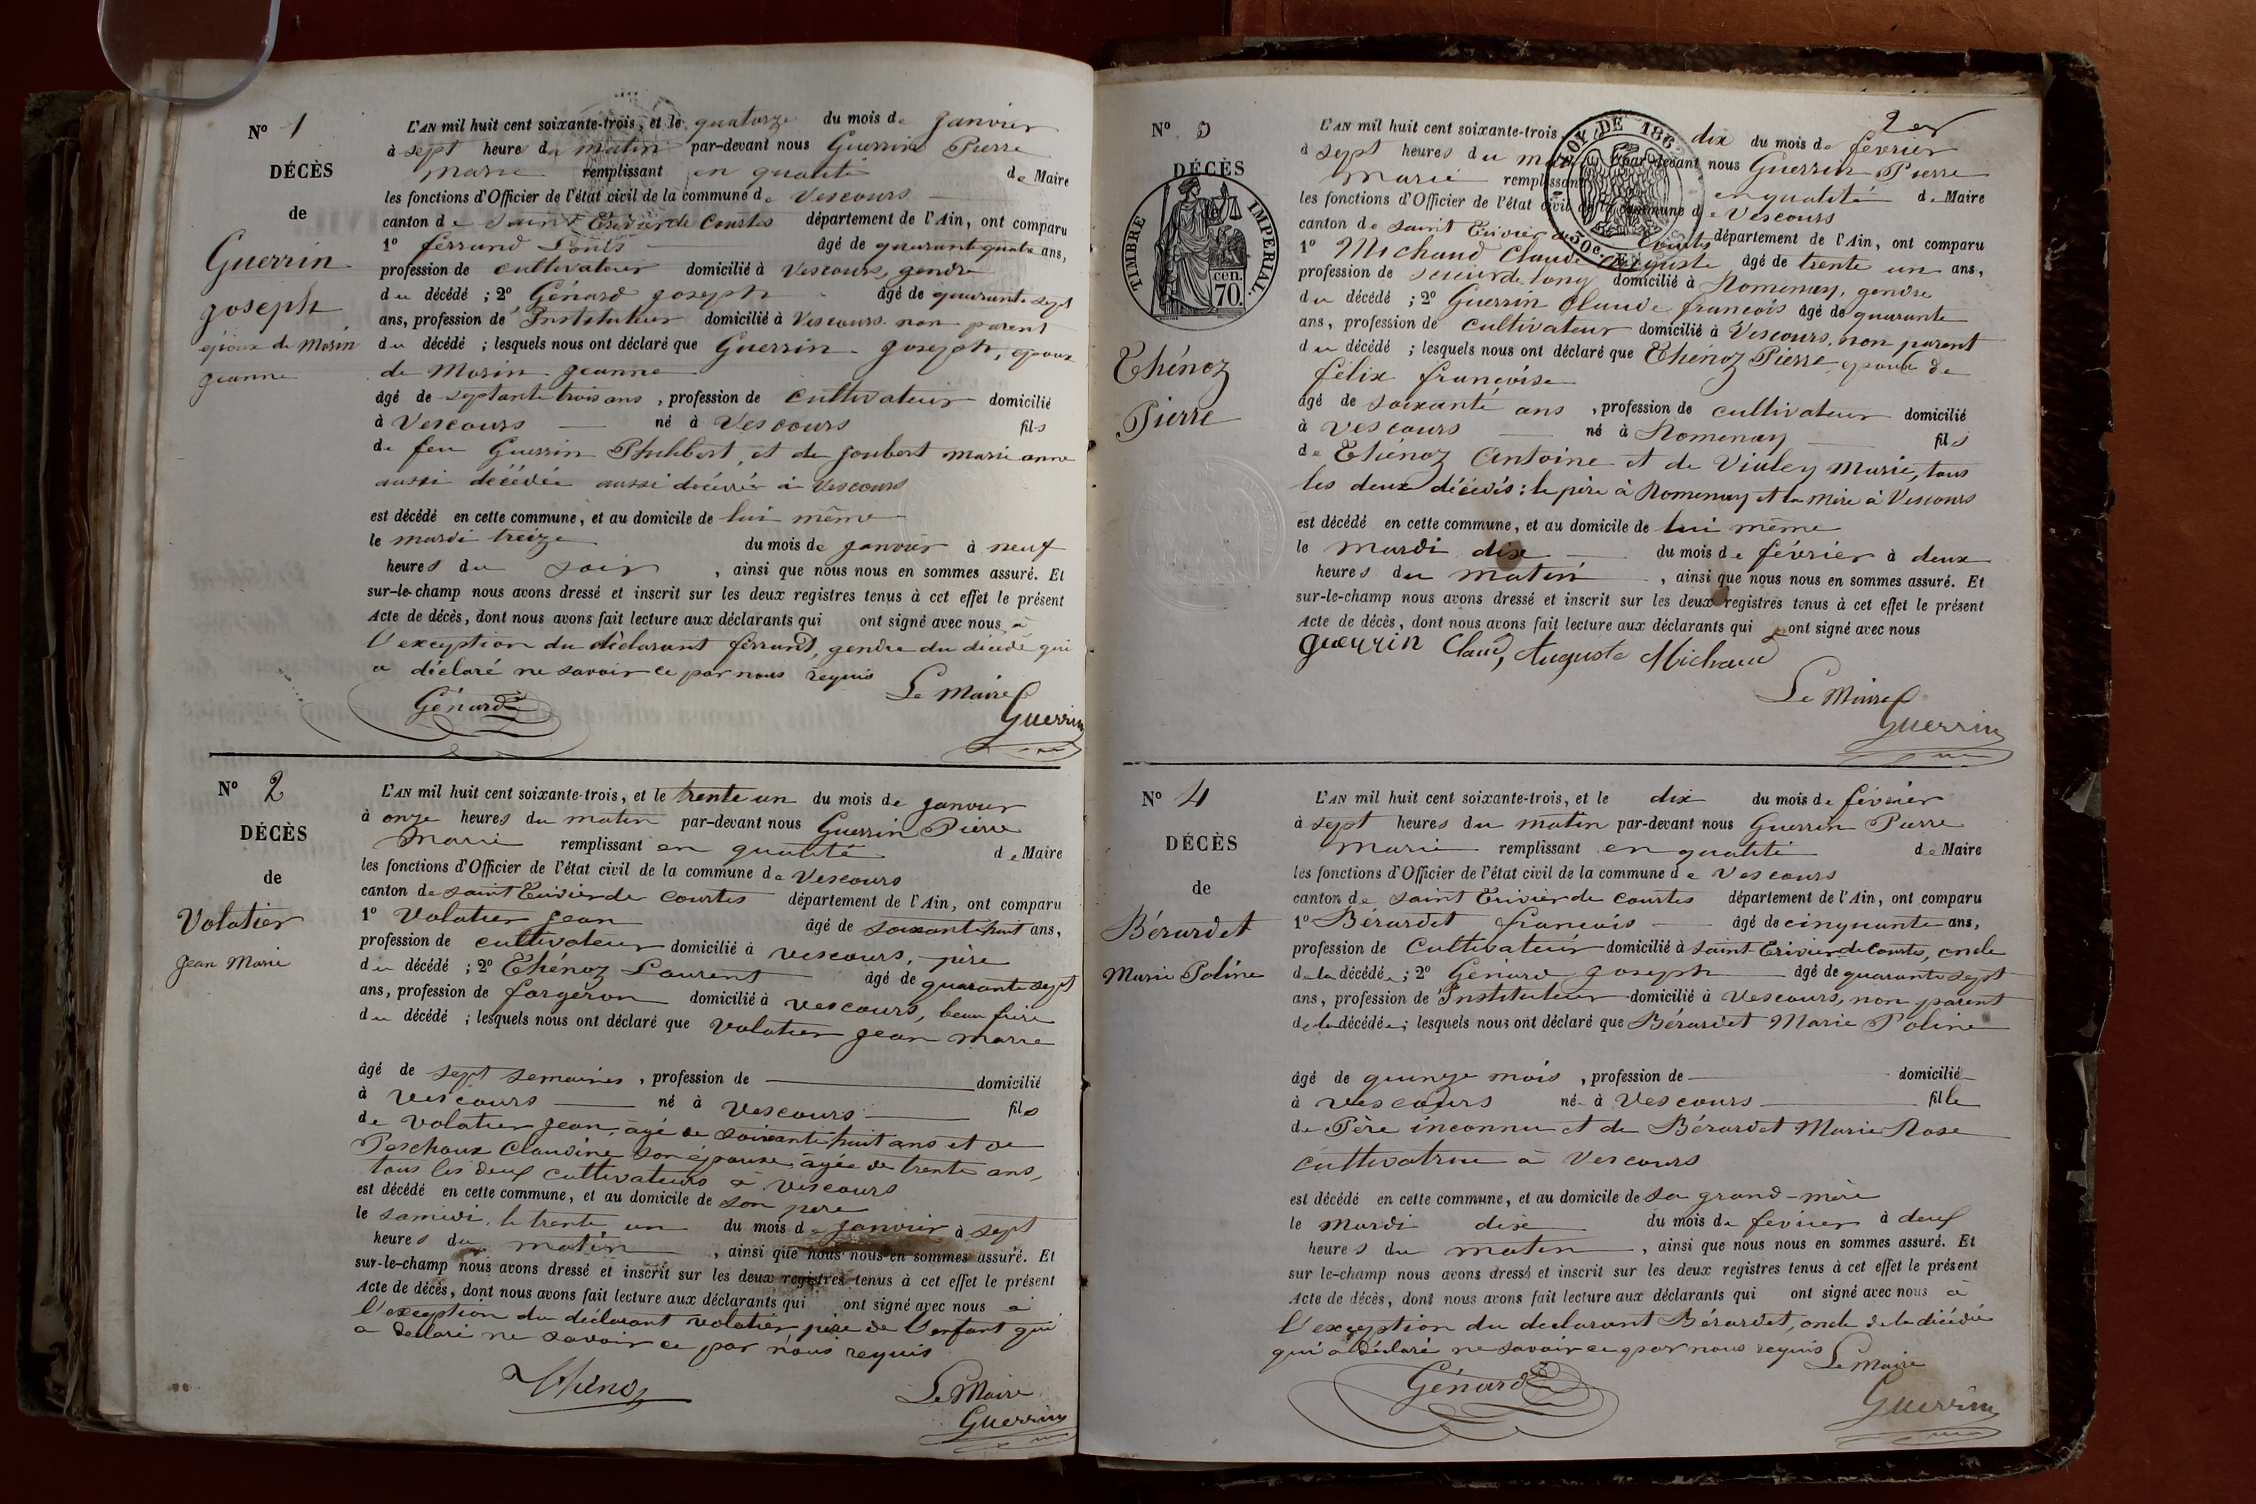 N° 1
DÉCÈS
de
Guerrin
joseph
époux de Morin
jeanne
L'AN mil huit cent soixante-trois, et le quatorze du mois de janvier
à sept heures du matin par-devant nous Guerrin Pierre
marie remplissant en qualité de Maire
les fonctions d'Officier de l'état civil de la commune de Vescours
canton de Saint Trivier de Courtes département de l'Ain, ont comparu
1° ferrand Louis âgé de quarante quatre ans,
profession de cultivateur domicilié à Vescours, gendre
du décédé ; 2° Génard joseph âgé de quarante sept
ans, profession de Instituteur domicilié à Vescours non parent
du décédé ; lesquels nous ont déclaré que Guerrin joseph, époux
de Morin jeanne
âgé de septante trois ans, profession de cultivateur domicilié
à Vescours né à Vescours fils
de feu Guerrin Philibert, et de joubert marie anne
aussi décédée aussi décédée à Vescours
est décédé en cette commune, et au domicile de lui même
le mardi treize du mois de janvier à neuf
heures du soir, ainsi que nous nous en sommes assuré. Et
sur-le-champ nous avons dressé et inscrit sur les deux registres tenus à cet effet le présent
Acte de décès, dont nous avons fait lecture aux déclarants qui ont signé avec nous à
l'exception du déclarant ferrand, gendre du décédé qui
a déclaré ne savoir ce par nous requis
Génard Le Maire
Guerrin
N° 2
DÉCÈS
de
Volatier
Jean Marie
L'AN mil huit cent soixante-trois, et le trente un du mois de janvier
à onze heures du matin par-devant nous Guerrin Pierre
Marie remplissant en qualité de Maire
les fonctions d'Officier de l'état civil de la commune de Vescours
canton de Saint Trivier de Courtes département de l'Ain, ont comparu
1° Volatier Jean âgé de soixante huit ans,
profession de cultivateur domicilié à Vescours, père
du décédé ; 2° Thénoz Laurent âgé de quarante sept
ans, profession de forgeron domicilié à Vescours, beau frère
du décédé ; lesquels nous ont déclaré que Volatier jean marie
âgé de sept semaines, profession de domicilié
à Vescours né à Vescours fils
de Volatier jean, âgé de soixante huit ans et de
Peschoux Claudine son épouse, âgée de trente ans,
tous les deux cultivateurs à Vescours
est décédé en cette commune, et au domicile de son père
le samedi, le trente un du mois de janvier à sept
heures du matin, ainsi que nous nous en sommes assuré. Et
sur-le-champ nous avons dressé et inscrit sur les deux registres tenus à cet effet le présent
Acte de décès, dont nous avons fait lecture aux déclarants qui ont signé avec nous à
l'exception du déclarant volatier, père de l'enfant qui
a déclaré ne savoir ce par nous requis
Thénoz Le Maire
Guerrin
N° 3
DÉCÈS
TIMBRE IMPERIAL
cen.
70.
Thénoz
Pierre
L'AN mil huit cent soixante-trois, dix du mois de février
à sept heures du matin par-devant nous Guerrin Pierre
Marie remplissant en qualité de Maire
les fonctions d'Officier de l'état civil de la commune de Vescours
canton de saint Trivier de Courtes département de l'Ain, ont comparu
1° Michaud Claude Auguste âgé de trente un ans,
profession de scieur de long domicilié à Romenay, gendre
du décédé ; 2° Guerrin Claude françois âgé de quarante
ans, profession de cultivateur domicilié à Vescours, non parent
du décédé ; lesquels nous ont déclaré que Thénoz Pierre, époux de
félix françoise
âgé de soixante ans, profession de cultivateur domicilié
à Vescours né à Romenay fils
de Thénoz Antoine et de Vialey Marie, tous
les deux décédés : le père à Romenay et la mère à Vescours
est décédé en cette commune, et au domicile de lui même
le mardi dix du mois de février à deux
heures du matin, ainsi que nous nous en sommes assuré. Et
sur-le-champ nous avons dressé et inscrit sur les deux registres tenus à cet effet le présent
Acte de décès, dont nous avons fait lecture aux déclarants qui ont signé avec nous
guerrin Claud, Auguste Michaud
Le Maire
Guerrin
N° 4
DÉCÈS
de
Bérardet
Marie Poline
L'AN mil huit cent soixante-trois, et le dix du mois de février
à sept heures du matin par-devant nous Guerrin Pierre
Marie remplissant en qualité de Maire
les fonctions d'Officier de l'état civil de la commune de Vescours
canton de Saint Trivier de Courtes département de l'Ain, ont comparu
1° Bérardet françois âgé de cinquante ans,
profession de Cultivateur domicilié à Saint Trivier de Courtes, oncle
de la décédée ; 2° Génard joseph âgé de quarante sept
ans, profession de Instituteur domicilié à Vescours, non parent
de la décédée ; lesquels nous ont déclaré que Bérardet Marie Poline
âgé de quinze mois, profession de domicilié
à Vescours né à Vescours fille
de Père inconnu et de Bérardet Marie Rose
cultivatrice à Vescours
est décédé en cette commune, et au domicile de sa grand-mère
le mardi dix du mois de février à deux
heures du matin, ainsi que nous nous en sommes assuré. Et
sur le-champ nous avons dressé et inscrit sur les deux registres tenus à cet effet le présent
Acte de décès, dont nous avons fait lecture aux déclarants qui ont signé avec nous à
l'exception du déclarant Bérardet, oncle de la décédée
qui a déclaré ne savoir ce par nous requis
Génard Le Maire
Guerrin